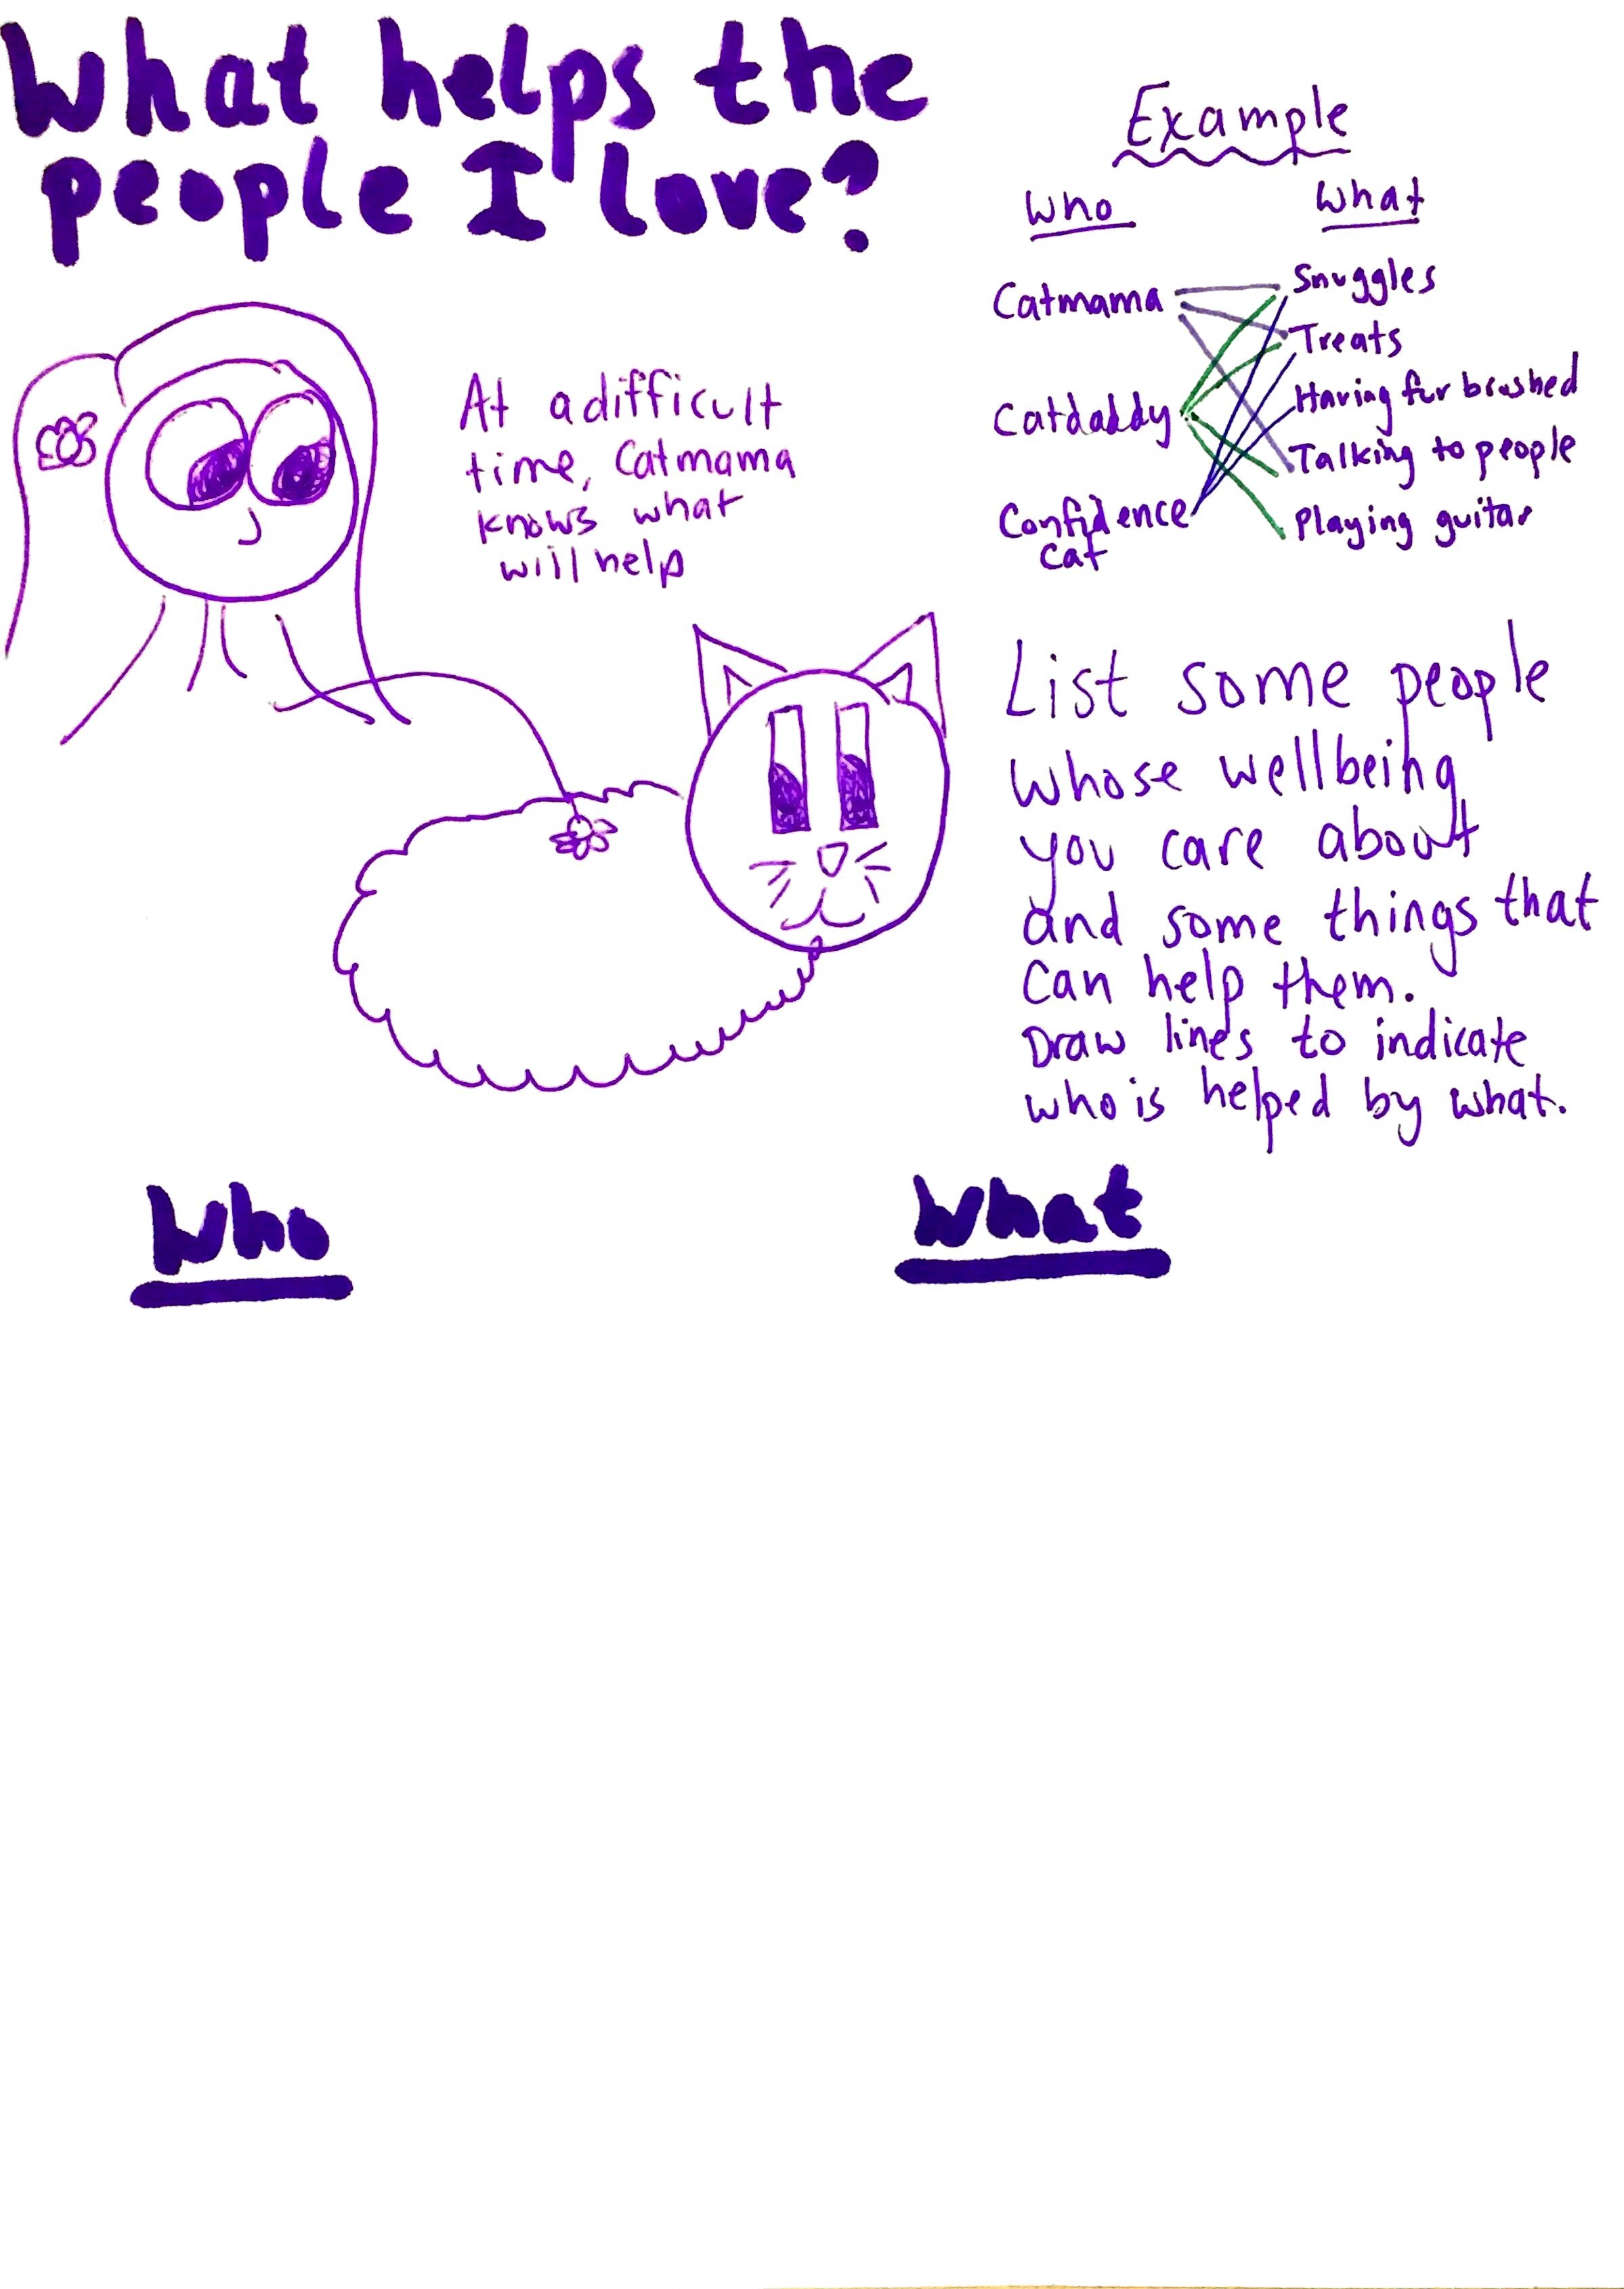 What helps the
people I love?
Example
Who
What
Catmama
Catdaddy
Confidence
Cat
Snuggles
Treats
Having fur brushed
Talking to people
Playing guitar
At a difficult
time, Catmama
knows what
will help
List some people
whose wellbeing
you care about
and some things that
can help them.
Draw lines to indicate
who is helped by what.
Who
What